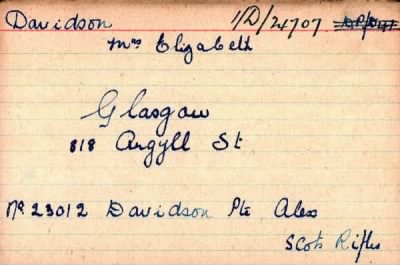 Davidson 1/D/24707
Mrs Elizabeth
Glasgow
818 Argyll St
No 23012 Davidson Pte Alex
Scots Rifles